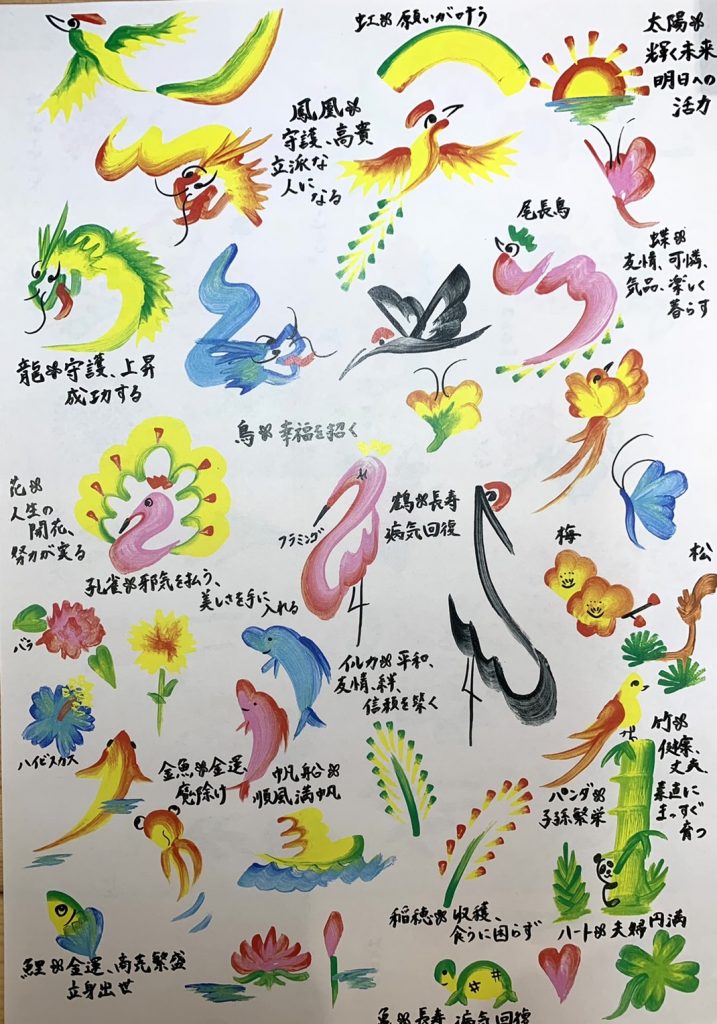 虹※願いが叶う
太陽※
輝く未来
明日への
活力
鳳凰※
守護、高貴
立派な
人に
なる
尾長鳥
蝶※
友情、可憐、
気品、楽しく
暮らす
龍※守護、上昇
成功する
鳥※幸福を招く
花※
人生の
開花、
努力が実る
フラミンゴ
鶴※長寿
病気回復
梅
松
孔雀※邪気を払う、
美しさを手に
入れる
バラ
イルカ※平和、
友情、絆、
信頼を築く
ハイビスカス
金魚※金運、
魔除け
帆船※
順風満帆
竹※
健康、
丈夫、
素直に
まっすぐ
育つ
パンダ※
子孫繁栄
稲穂※収穫、
食うに困らず
ハート※夫婦円満
鯉※金運、商売繁盛
立身出世
※長寿、病気回復